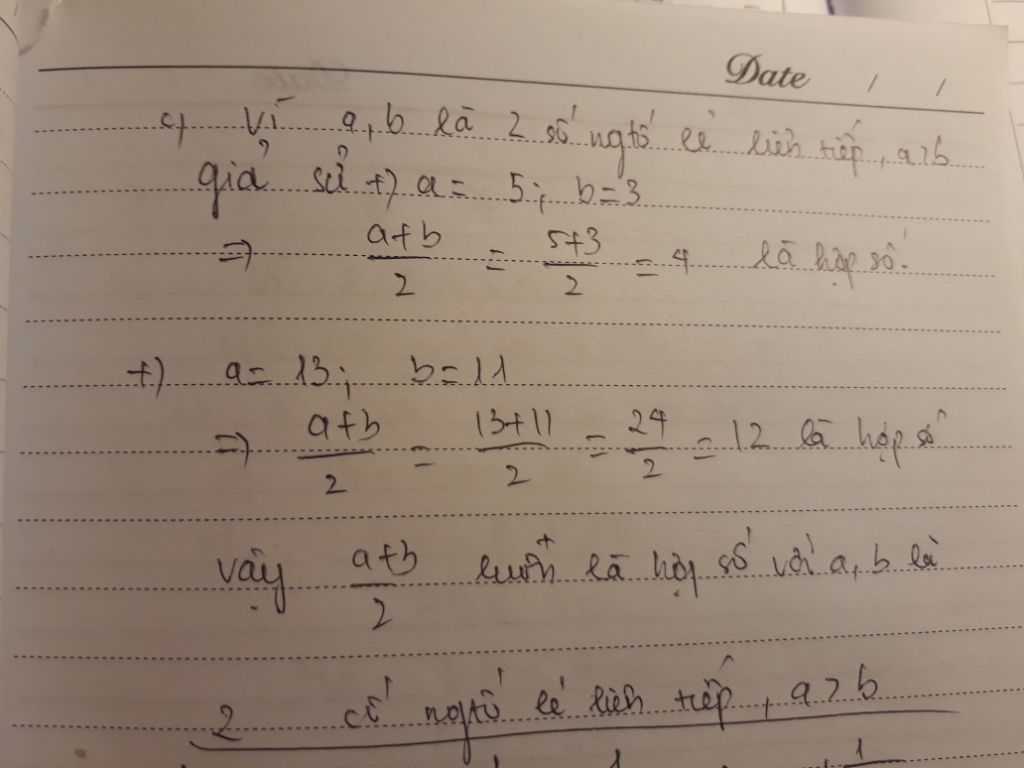 Date / /
c) Vì a, b là 2 số ngtố lẻ liên tiếp, a > b
giả sử +) a = 5; b = 3
=> a+b/2 = 5+3/2 = 4 là hợp số.
+) a = 13; b = 11
=> a+b/2 = 13+11/2 = 24/2 = 12 là hợp số
vậy a+b/2 luôn là hợp số với a, b là
2 số ngtố lẻ liên tiếp, a > b